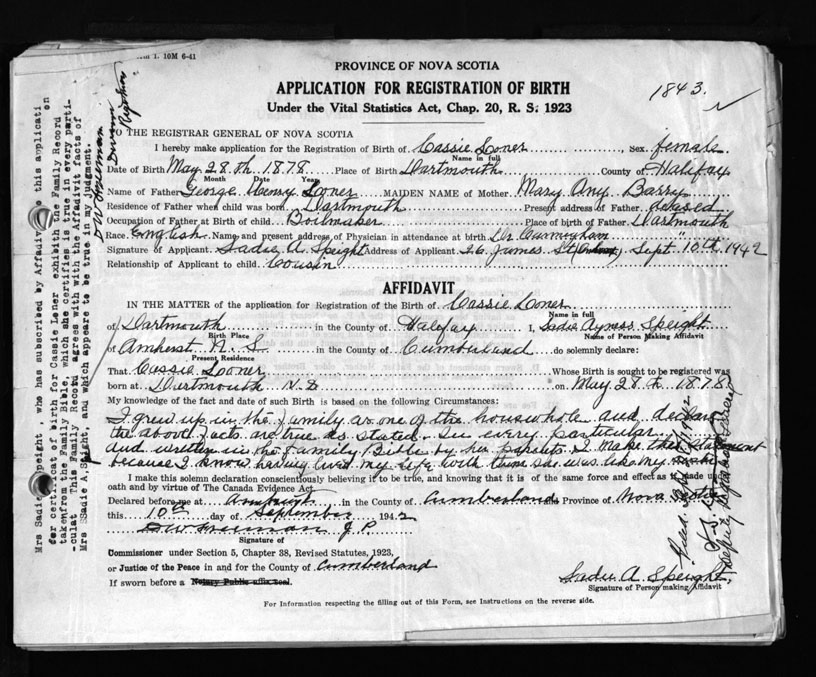 1. 10M 6-41
PROVINCE OF NOVA SCOTIA
APPLICATION FOR REGISTRATION OF BIRTH
Under the Vital Statistics Act, Chap. 20, R. S. 1923
1843.
THE REGISTRAR GENERAL OF NOVA SCOTIA
I hereby make application for the Registration of Birth of Cassie Loner, Sex female
Name in full
Date of Birth May 28th 1878 Place of Birth Dartmouth County of Halifax
Month Date Year
Name of Father George Henry Loner MAIDEN NAME of Mother Mary Any Barry
Residence of Father when child was born Dartmouth Present address of Father
Occupation of Father at Birth of child Boilmaker Place of birth of Father Dartmouth
Race English Name and present address of Physician in attendance at birth Dr Cunningham " "
Signature of Applicant Sadie A Speight Address of Applicant 26 James St Sept. 10th 1942
Relationship of Applicant to child Cousin
AFFIDAVIT
IN THE MATTER of the application for Registration of the Birth of Cassie Loner
Name in full
of Dartmouth in the County of Halifax I, Sadie Speight
Birth Place Name of Person Making Affidavit
of Amherst N. S. in the County of Cumberland do solemnly declare:
Present Residence
That Cassie Looner Whose Birth is sought to be registered was
born at Dartmouth N. S on May 28th 1878
My knowledge of the fact and date of such Birth is based on the following Circumstances:
I grew up in the family as one of the household and declare
the above facts are true as stated in every particular
and written in the family Bible by her parents I make this statement
because I know having lived my life with them she was like my
I make this solemn declaration conscientiously believing it to be true, and knowing it is of the same force and effect as if made under
oath and by virtue of The Canada Evidence Act.
Declared before me at Amherst in the County of Cumberland Province of Nova Scotia
this 10th day of September 1942
DW Freeman J. P.
Signature of
Commissioner under Section 5, Chapter 38, Revised Statutes, 1923,
or Justice of the Peace in and for the County of Cumberland
If sworn before a Notary Public affix seal.
Sadie A Speight
Signature of Person making Affidavit
For Information respecting the filling out of this Form, see Instructions on the reverse side.
Mrs Sadie Speight, who has subscribed by Affadivit to this applicati on
for certificat of birth for Cassie Loner exhibits the Family Record
takenfrom the Family Bible, which she certifies is true in every parti-
culat This Family Record agrees with with the Affadivit facts of
Mrs SSadie A, Speight, and which appears to be true in my judgment.
DW Freeman
Division Registrar
Deputy Registrar General